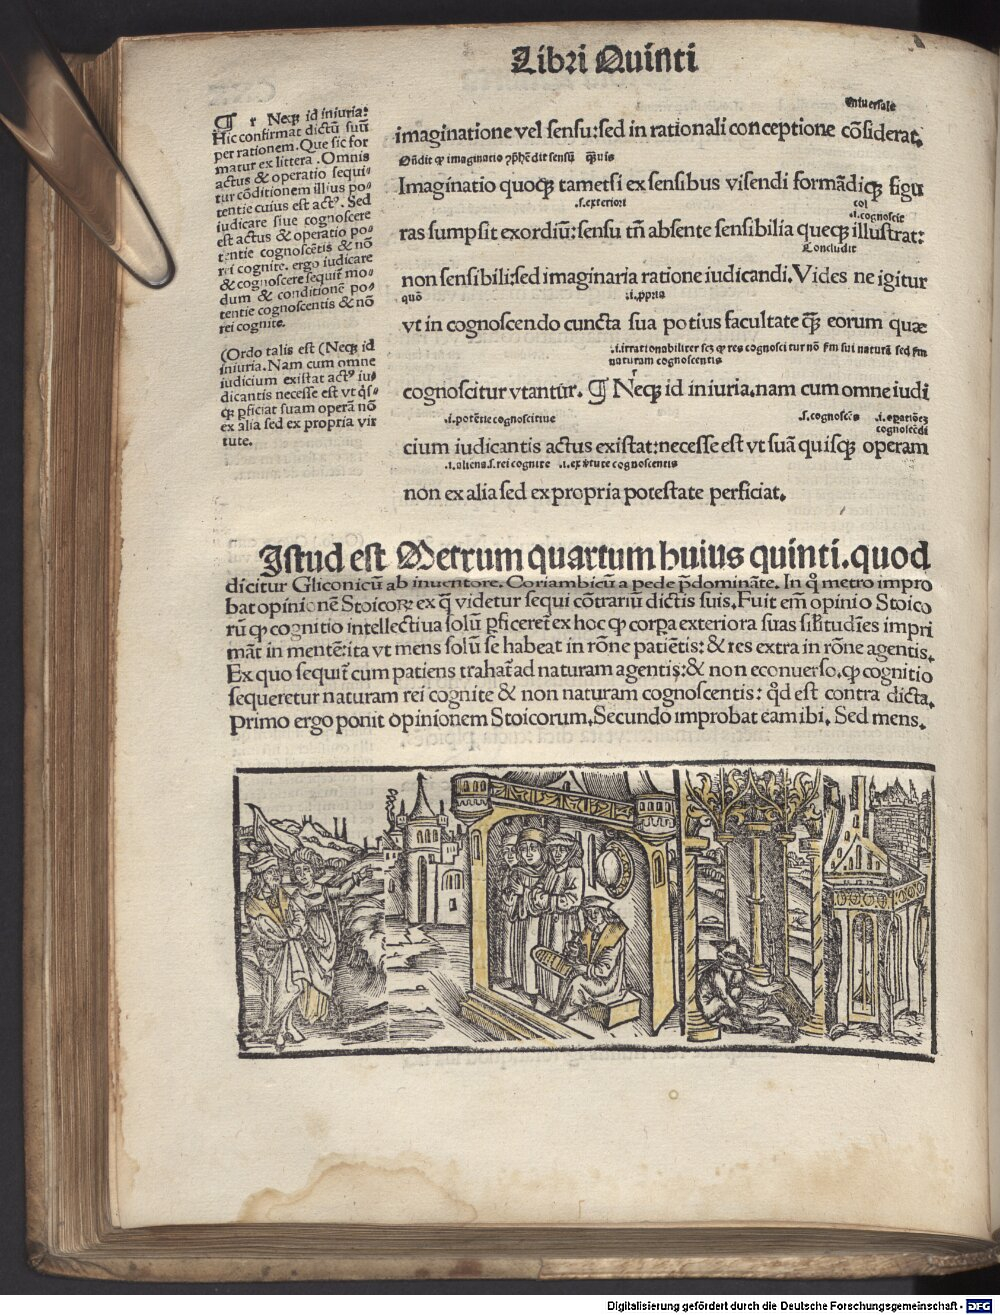 Libri Quinti
¶ r Neqꝫ id iniuria:
Hic confirmat dictū suū
per rationem. Que sic for
matur ex littera . Omnis
actus & operatio sequi⸗
tur cōditionem illius po⸗
tentie cuius est actꝰ. Sed
iudicare siue cognoscere
est actus & operatio po⸗
tentie cognoscētis & nō
rei cognite. ergo iudicare
& cognoscere sequit̄ mo⸗
dum & conditionē po⸗
tentie cognoscentis & nō
rei cognite.
(Ordo talis est (Neqꝫ id
iniuria. Nam cum omne
iudicium existat actꝰ iu⸗
dicantis necesse est vt q̇s⸗
qꝫ ꝑficiat suam operā nō
ex alia sed ex propria vir
tute.
vniuersale
imaginatione vel sensu: sed in rationali conceptione cōsiderat.
Oñdit ꝙ imaginatio ꝯp̄hēdit sensū quis
Imaginatio quoqꝫ tametsi ex sensibus visendi formādiqꝫ figu
.s.exteriori
.i.cognoscit
ras sumpsit exordiū: sensu tñ absente sensibilia queqꝫ illustrat:
Concludit
non sensibili: sed imaginaria ratione iudicandi. Vides ne igitur
quō .i.ꝓpria
vt in cognoscendo cuncta sua potius facultate q̄ꝫ eorum quæ
.i.irrationabiliter scꝫ ꝙ res cognoscitur nō fm sui naturā sed fm
naturam cognoscentis
cognoscitur vtantūr. ¶ Neqꝫ id iniuria. nam cum omne iudi
.i.potētie cognoscitiue .s.cognoscēs .i.opationeꝫ
cognoscēdi
cium iudicantis actus existat: necesse est vt suā quisqꝫ operam
.i.aliena.s.rei cognite .i.ex v̄tute cognoscentis
non ex alia sed ex propria potestate perficiat.
Istud est Metrum quartum huius quinti. quod
dicitur Gliconicū ab inuentore. Coriambicū a pede p̄domināte. In q̊ metro impro
bat opinionē Stoicoꝝ ex q̄ videtur sequi cōtrariū dictis suis. Fuit em̄ opinio Stoico
rū ꝙ cognitio intellectiua solū ꝑficeret̄ ex hoc ꝙ corpa exteriora suas sil̄itudīes impri
māt in mentē: ita vt mens solū se habeat in rōne patiētis: & res extra in rōne agentis.
Ex quo sequit̄ cum patiens trahat̄ ad naturam agentis: & non econuerso. ꝙ cognitio
sequeretur naturam rei cognite & non naturam cognoscentis: q̊d est contra dicta.
Primo ergo ponit opinionem Stoicorum. Secundo improbat eam ibi. Sed mens.
Digitalisierung gefördert durch die Deutsche Forschungsgemeinschaft - DFG